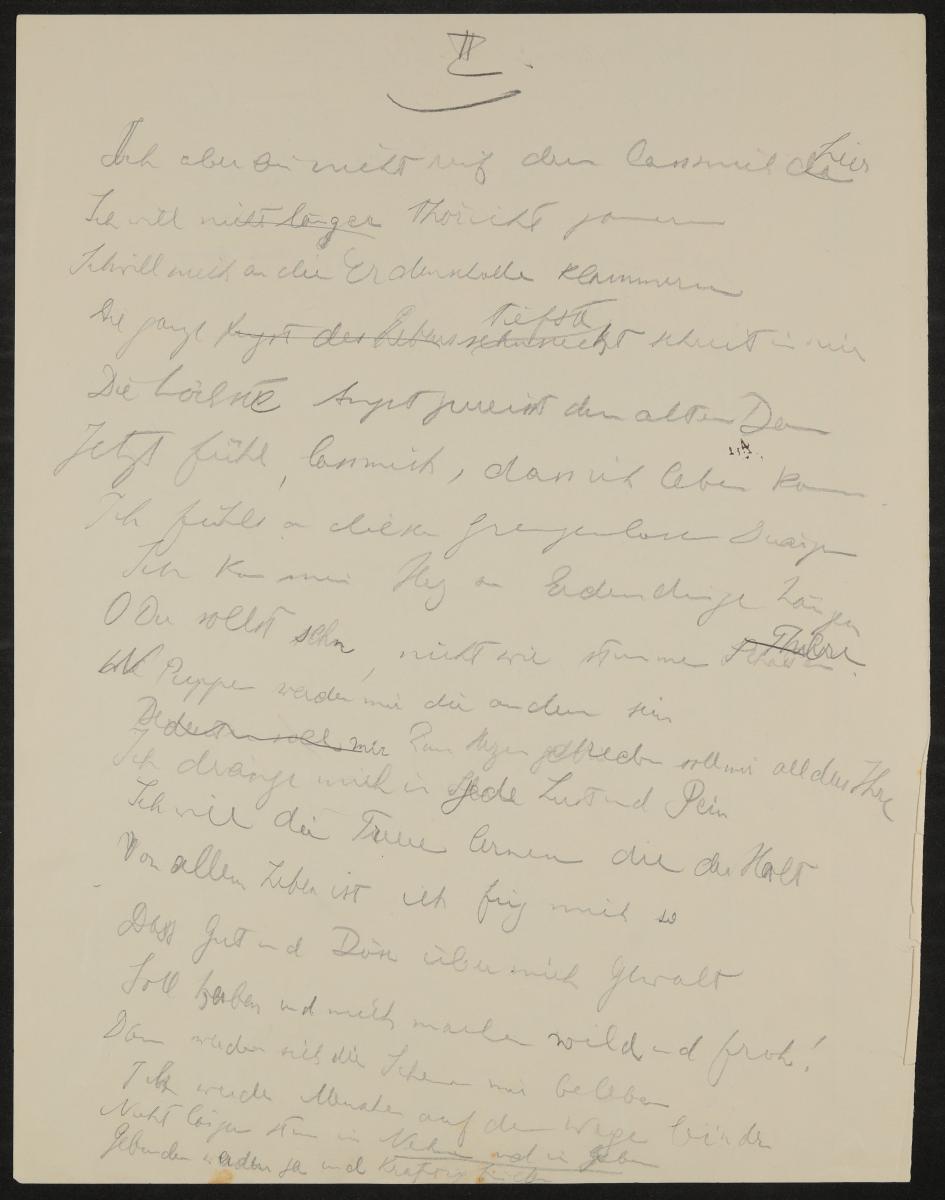 II.
Ich aber bin nicht reif dazu lass mich hier da
Ich will nicht länger thöricht jammern
Ich will mich an die Erdenscholle klammern
Die ganze Angst des Lebens tiefste sehnsucht schreit in mir
Die höchste Angst zerreisst den alten Bann
Jetzt fühl, lass mich, dass ich leben kann
Ich fühls an diesem grenzenlosen Drängen
Ich kann mein Herz an Erdendinge hängen
O Du sollst sehn, nicht wie stumme Thiere
Puppen werden mir die andern sein
Bedeuten soll mir Zum Herzen gebrochen soll mir all das Ihre
Ich dränge mich in jede Lust und Pein
Ich will die Treue lernen die der Halt
Von allem Leben ist ich füg mich so
Dass Gut und Bös über mich Gewalt
Soll haben und mich machen wild und froh!
Dann werden sich die Schemen mir beleben
Ich werde Menschen auf dem Wege finden
Nicht länger stumm im Nehmen und im Geben
Gebunden werden ja und kräftig binden